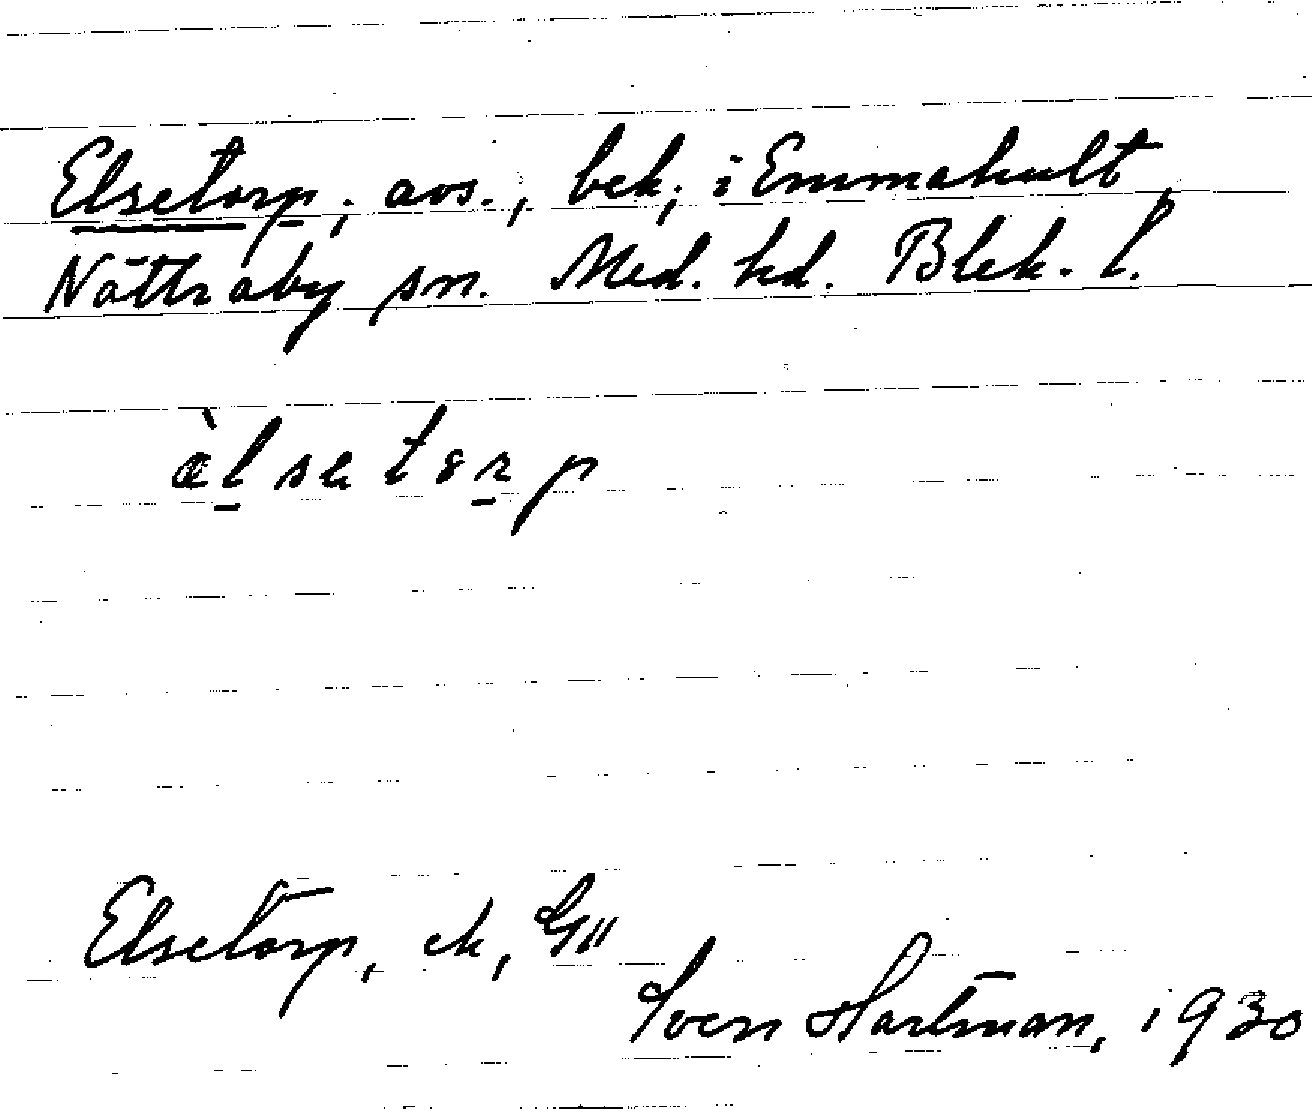 Elsetorp; avs., bek; i Emmahult,
Nättraby sn. Med. hd. Blek. l.
æ̀lsetɵrp
Elsetorp, ek, GII
Sven Hartman, 1930